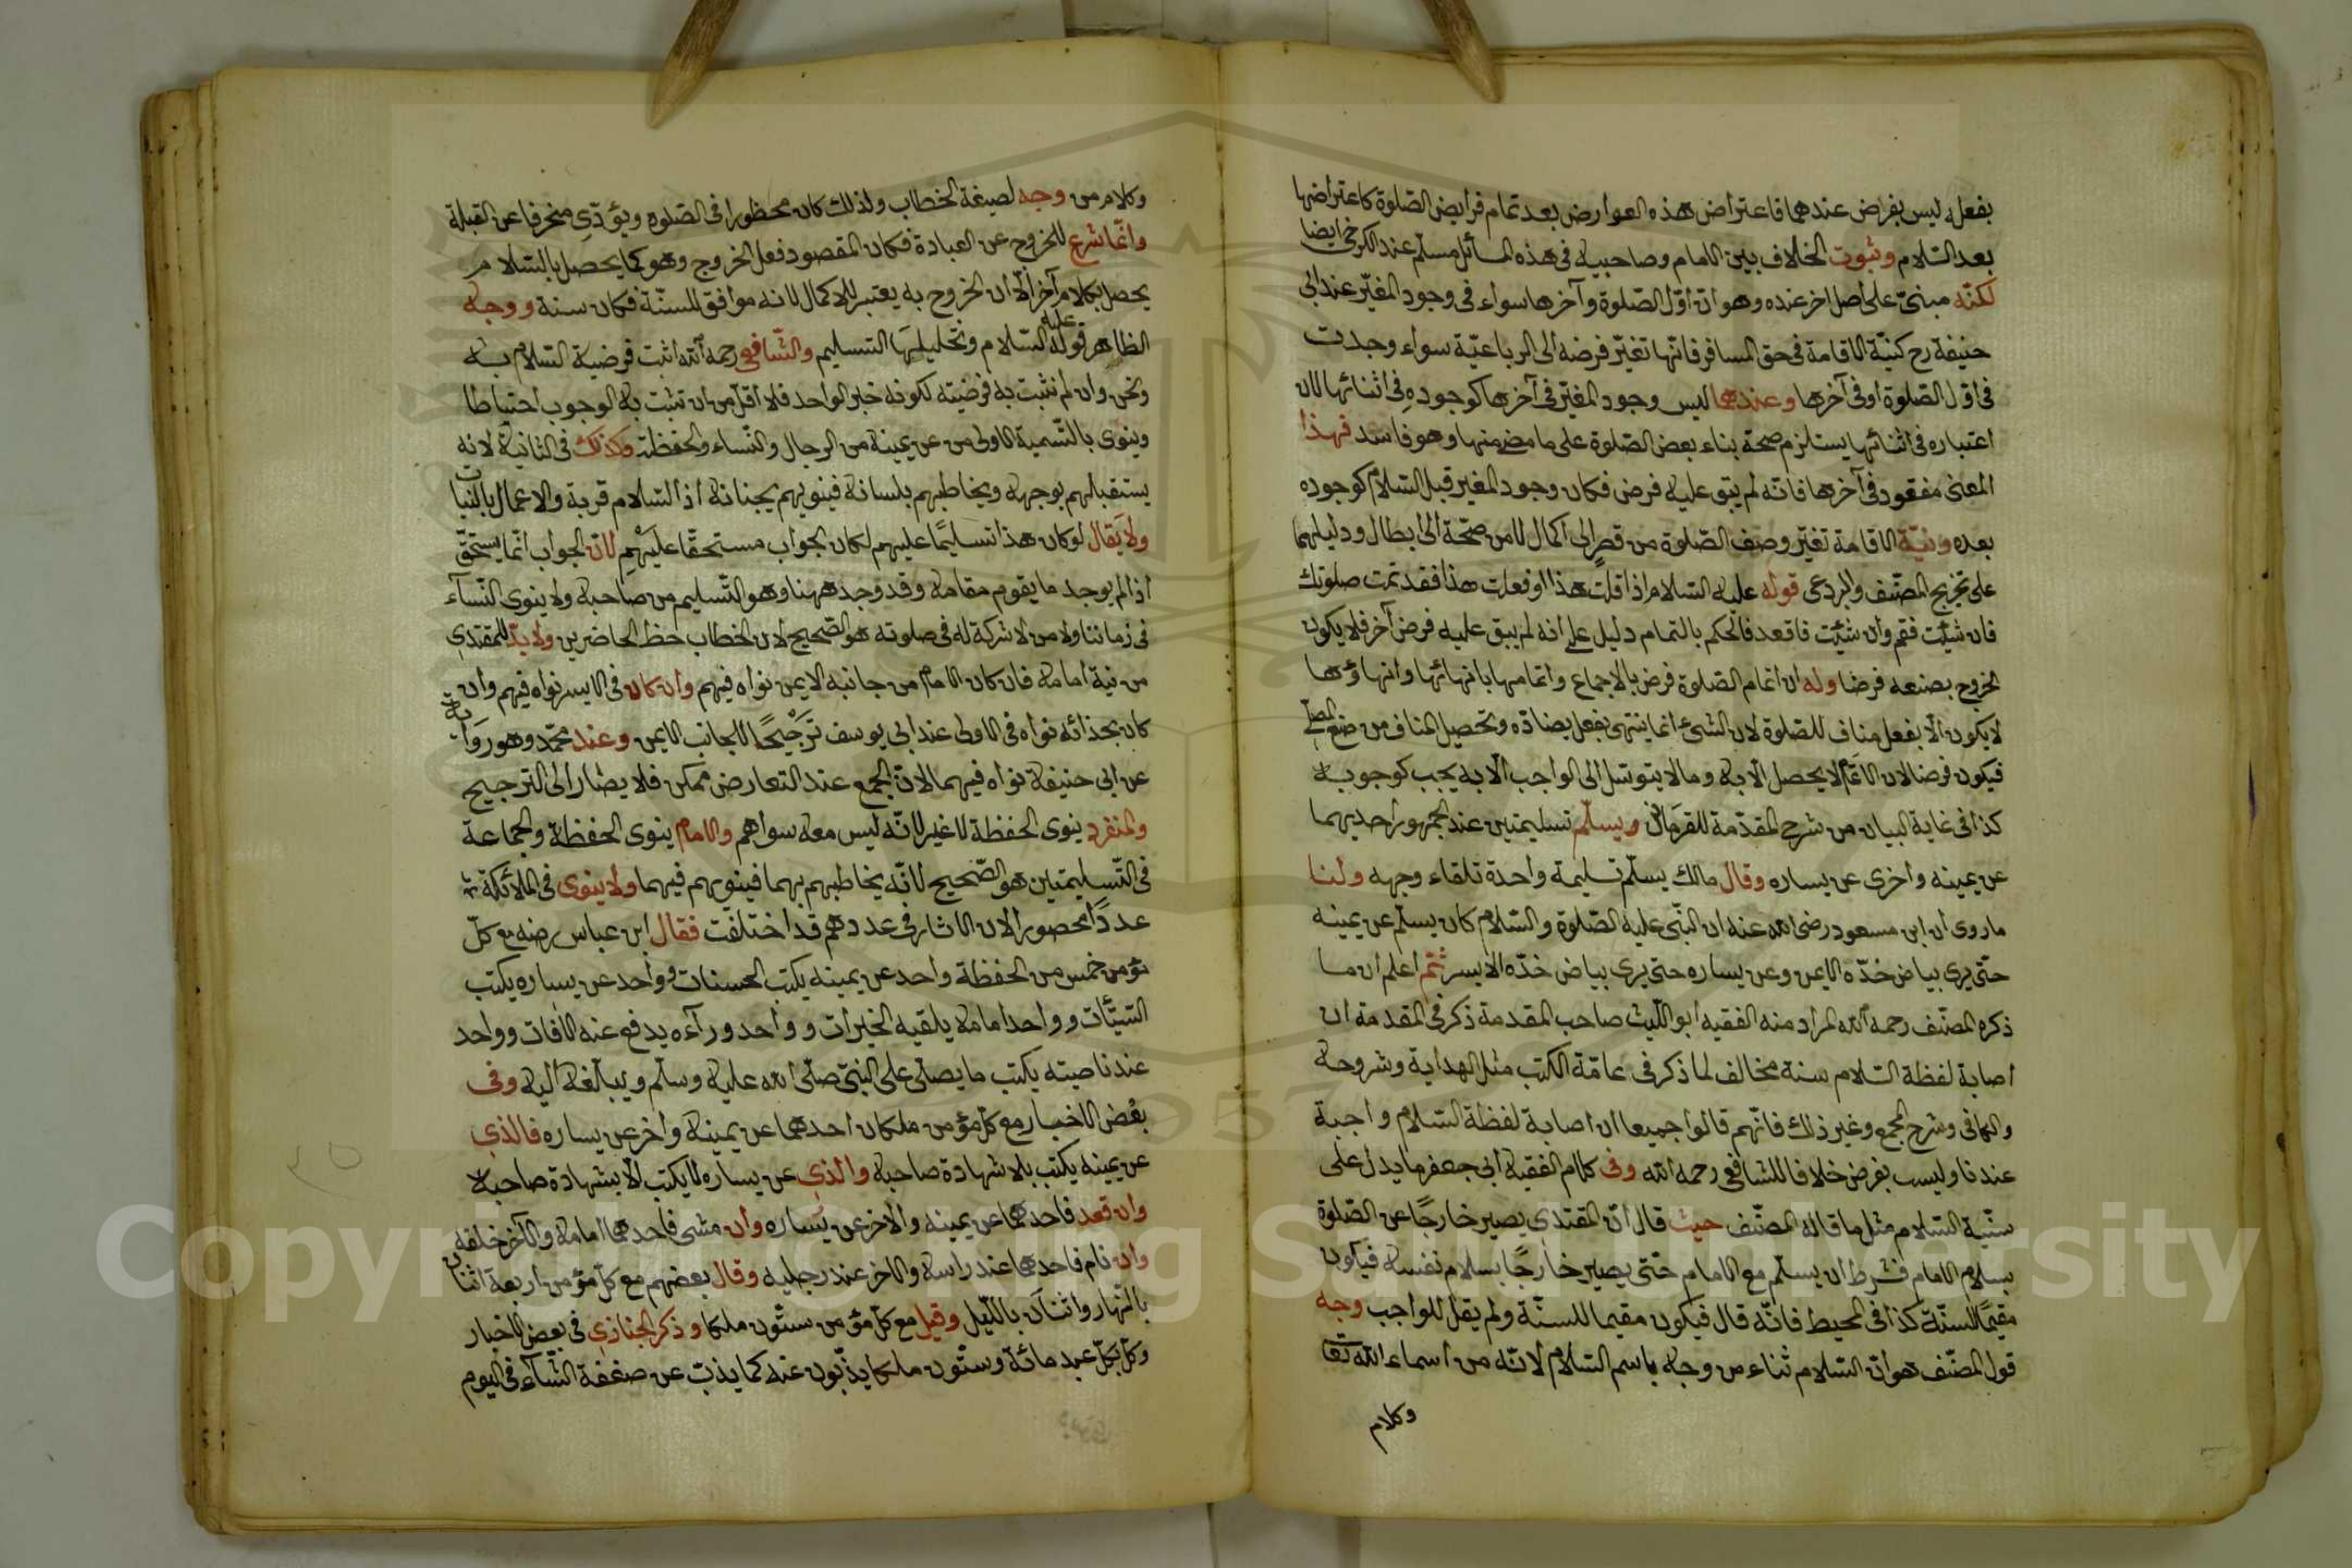 بفعله ليس بفرض عندهما فاعتراض هذه العوارض بعد تمام فرايض الصّلوة كاعتراضها
بعد السّلام وثبوت الخلاف بين الامام وصاحبيه في هذه المسائل مسلّم عند الكرخي ايضا
لكنّه مبنيّ على اصل اخر عنده وهو انّ اوّل الصّلوة وآخرها سواء في وجود المغيّر عند ابي
حنيفة رح كنيّة الاقامة في حق المسافر فانّها تغيّر فرضه الى الرباعيّة سواء وجدت
في اوّل الصّلوة او في آخرها وعندهما ليس وجود المغيّر في آخرها كوجوده في اثنائها لان
اعتباره في اثنائها يستلزم صحة بناء بعض الصّلوة على ما مضى منها وهو فاسد فهذا
المعنى مفقود في آخرها فانّه لم يبق عليه فرض فكان وجود المغير قبل السّلام كوجوده
بعده ونيّة الاقامة تغيّر وصف الصّلوة من قصر الى اكمال لا من صحّة الى ابطال ودليلهما
على تخريج المصنّف والبردعي قوله عليه السّلام اذا قلت هذا او فعلت هذا فقد تمت صلوتك
فان شئت فقم وان شئت فاقعد فالحكم بالتمام دليل على انه لم يبق عليه فرض آخر فلا يكون
الخروج بصنعه فرضا وله ان اتمام الصّلوة فرض بالاجماع واتمامها بانهائها وانهاؤها
لا يكون الّا بفعل مناف للصّلوة لان الشئ انما ينتهي بفعل يضادّه وتحصيل المنافي من صنع المصلّي
فيكون فرضا لان الاتمام لا يحصل الّا به وما لا يتوسّل الى الواجب الّا به يجب كوجوبه
كذا في غاية البيان من شرح المقدّمة للقرماني ويسلّم تسليمتين عند الجمهور احديهما
عن يمينه واخرى عن يساره وقال مالك يسلّم تسليمة واحدة تلقاء وجهه ولنا
ما روى ان ابن مسعود رضي الله عنه ان النّبي عليه الصّلوة والسّلام كان يسلّم عن يمينه
حتّى يرى بياض خدّه الايمن وعن يساره حتى يرى بياض خدّه الايسر ثمّ اعلم ان ما
ذكره المصنّف رحمه الله المراد منه الفقيه ابو اللّيث صاحب المقدمة ذكر في المقدمة ان
اصابة لفظة السّلام سنة مخالف لما ذكر في عامّة الكتب مثل الهداية وشروحه
والكافي وشرح المجمع وغير ذلك فانّهم قالوا جميعا ان اصابة لفظة السّلام واجبة
عندنا وليست بفرض خلافا للشافعي رحمه الله وفي كلام الفقيه ابي جعفر ما يدل على
سنّية السّلام مثل ما قاله المصنّف حيث قال انّ المقتدي يصير خارجًا عن الصّلوة
بسلام الامام فشرط ان يسلّم مع الامام حتّى يصير خارجًا بسلام نفسه فيكون
مقيمًا للسنّة كذا في المحيط فانّه قال فيكون مقيما للسنّة ولم يقل للواجب وجه
قول المصنّف هو انّ السّلام ثناء من وجه باسم السّلام لانّه من اسماء الله تعا
وكلام
وكلام من وجه لصيغة الخطاب ولذلك كان محظورا في الصّلوة ويؤدّي منحرفا عن القبلة
وانّما شرع للخروج عن العبادة فكان المقصود فعل الخروج وهو كما يحصل بالسّلام
يحصل بكلام آخر الّا ان الخروج به يعتبر للاكمال لانه موافق للسنّة فكان سنة ووجه
الظاهر قوله عليه السّلام وتحليلها التسليم والشّافعي رحمه الله اثبت فرضية السّلام به
ونحن وان لم نثبت به فرضيته لكونه خبر الواحد فلا اقلّ من ان تثبت به الوجوب احتياطا
وينوي بالتّسمية الاولى من عن يمينه من الرجال والنّساء والحفظة وكذلك في الثانية لانه
يستقبلهم بوجهه ويخاطبهم بلسانه فينويهم بجنانه اذ السّلام قربة والاعمال بالنّيات
ولا يقال لو كان هذا تسليمًا عليهم لكان الجواب مستحقّا عليهم لانّ الجواب انّما يستحقّ
اذا لم يوجد ما يقوم مقامه وقد وجد ههنا وهو التّسليم من صاحبه ولا ينوي النّسآء
في زماننا ولا من لا شركة له في صلوته هو الصّحيح لان الخطاب حظ الحاضرين ولا بدّ للمقتدي
من نية امامه فان كان الامام من جانبه الايمن نواه فيهم وان كان في الايسر نواه فيهم وان
كان بحذائه نواه في الاولى عند ابي يوسف ترجيحًا للجانب الايمن وعند محمّد وهو رواية
عن ابي حنيفة نواه فيهما لانّ الجمع عند التعارض ممكن فلا يصار الى الترجيح
والمنفرد ينوي الحفظة لا غير لانّه ليس معه سواهم والامام ينوي الحفظة والجماعة
في التّسليمتين هو الصّحيح لانّه يخاطبهم بهما فينويهم فيهما ولا ينوي في الملائكة
عددًا محصورا لان الاثار في عددهم قد اختلفت فقال ابن عباس رضه مع كلّ
مؤمن خمس من الحفظة واحد عن يمينه يكتب الحسنات وواحد عن يساره يكتب
السّيّئات وواحد امامه يلقيه الخيرات وواحد ورآءه يدفع عنه الآفات وواحد
عند ناصيته يكتب ما يصلّي على النّبيّ صلّى الله عليه وسلّم ويبلّغه اليه وفي
بعض الاخبار مع كلّ مؤمن ملكان احدهما عن يمينه واخر عن يساره فالذي
عن يمينه يكتب بلا شهادة صاحبه والذي عن يساره لا يكتب الّا بشهادة صاحبه
وان قعد فاحدهما عن يمينه والآخر عن يساره وان مشى فاحدهما امامه والآخر خلفه
وان نام فاحدهما عند راسه والاخر عند رجليه وقال بعضهم مع كلّ مؤمن اربعة اثنان
بالنّهار واثنان بالليل وقيل مع كلّ مؤمن ستّون ملكا وذكر الجنازي في بعض الاخبار
وكّل بكلّ عبد مائة وستّون ملكا يذبّون عنه كما يذبّ عن صغفة الشّآء في اليوم
Copyright © King Saud University